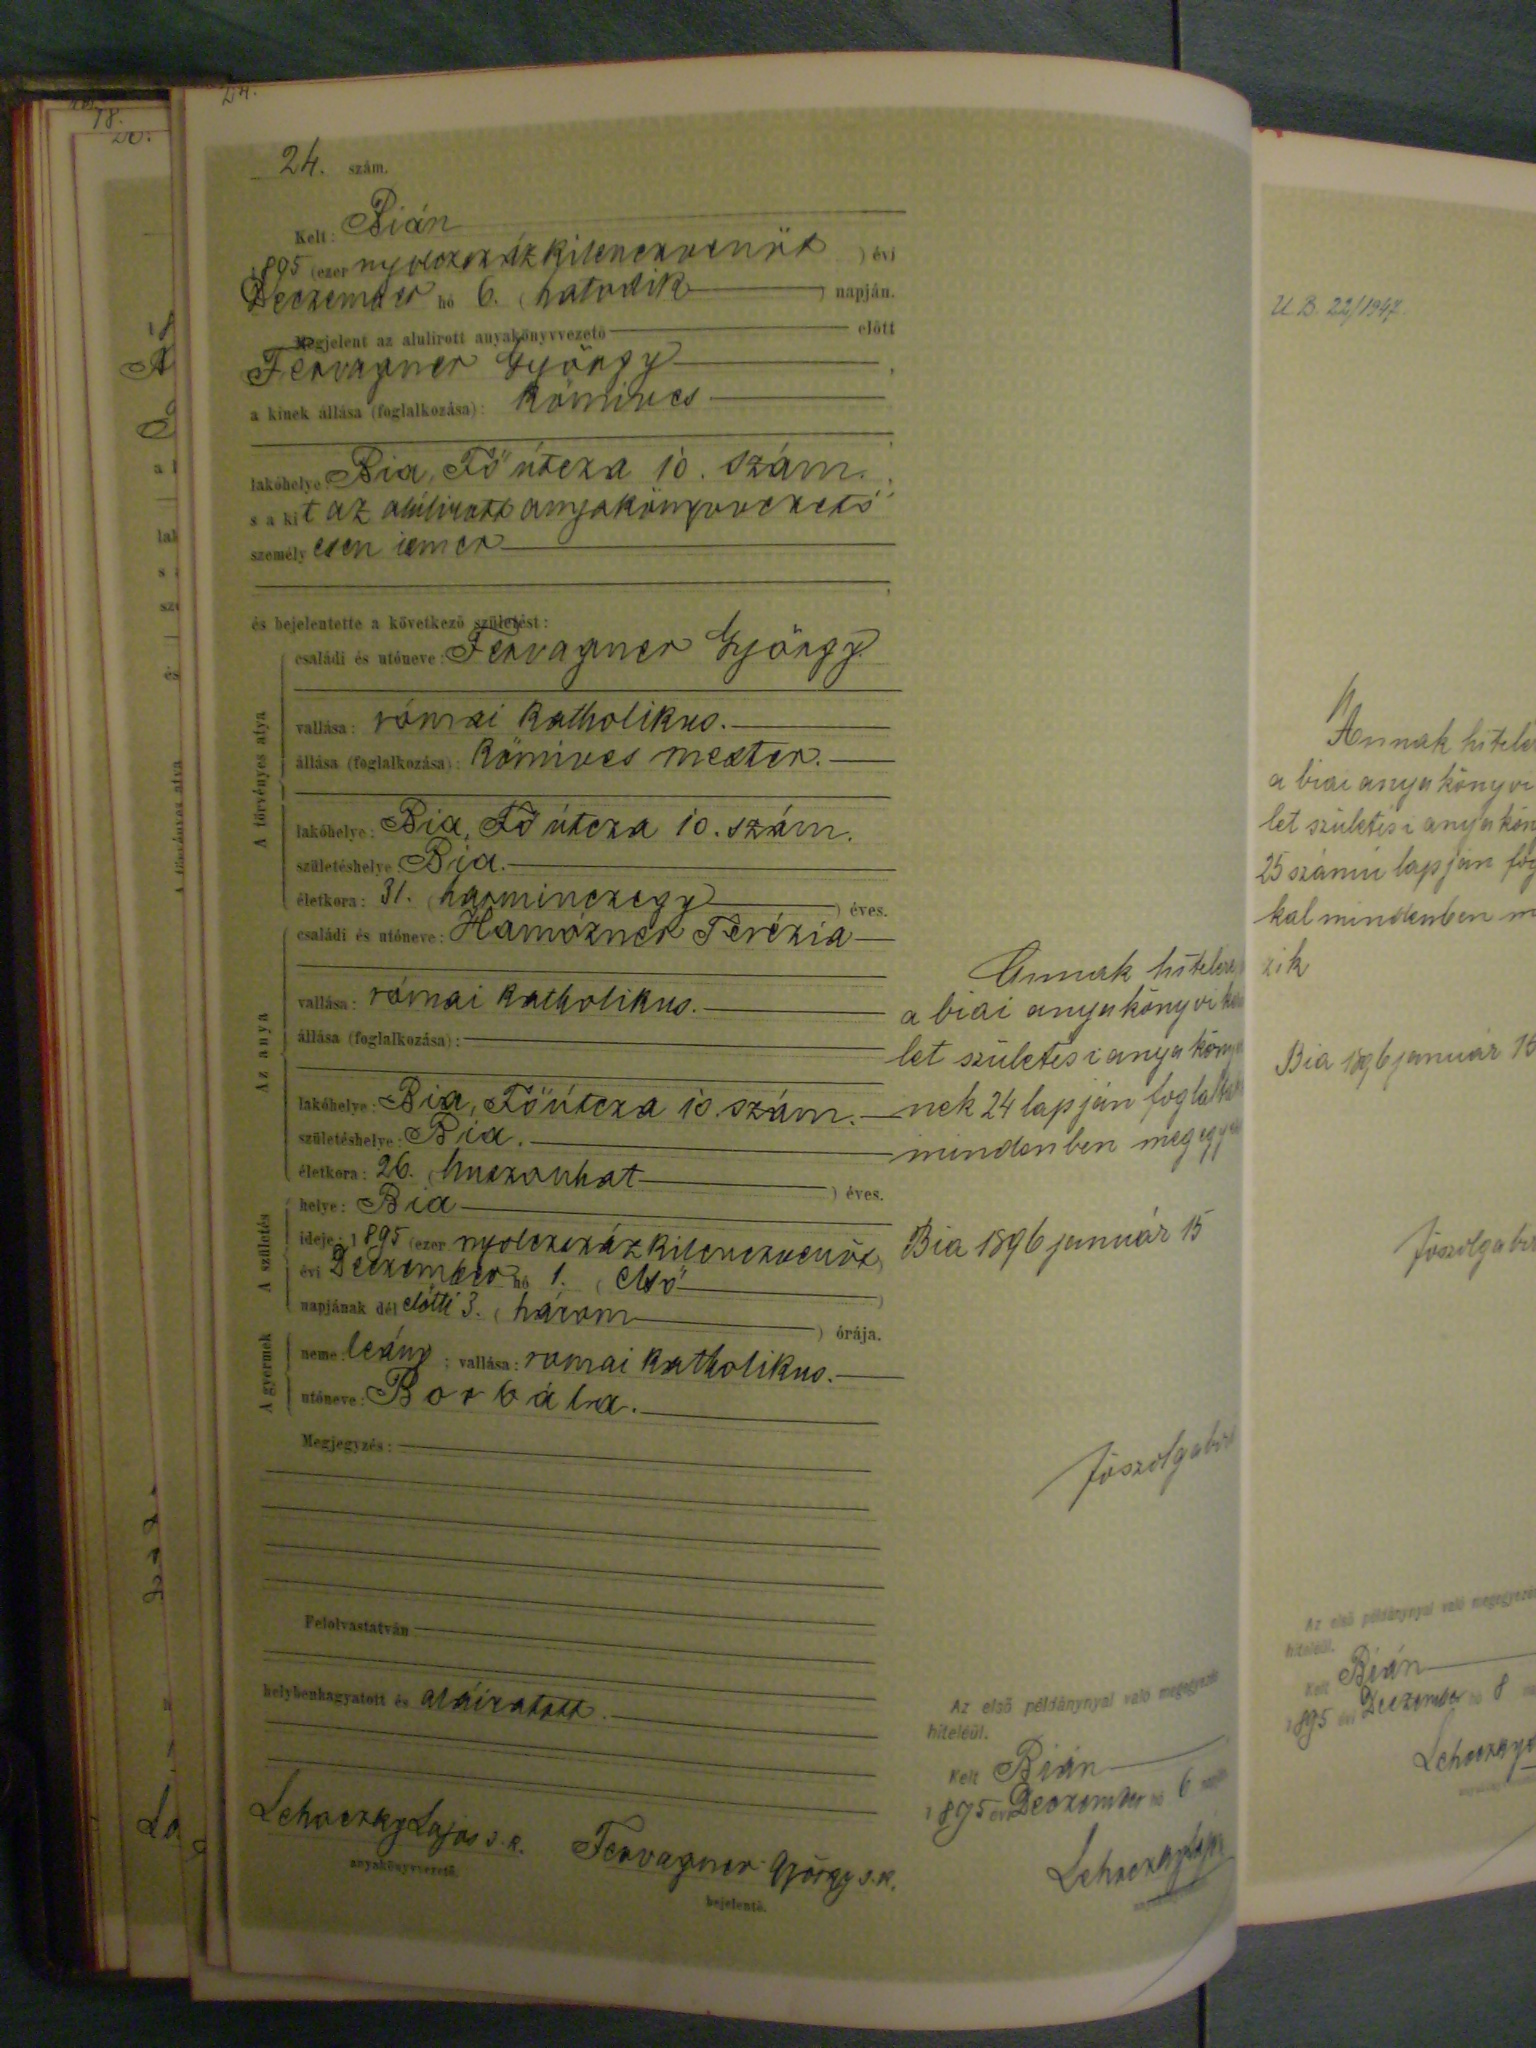 24.
24. szám.
Kelt: Bián
1895 (ezer nyolczszázkilenczvenöt ) évi
Deczember hó 6. (hatodik ) napján.
Megjelent az alulirott anyakönyvvezető előtt
Fervagner György
a kinek állása (foglalkozása): kőmives
lakóhelye: Bia, Fő útcza 10. szám.
s a kit az alúlirott anyakönyvvezető
személyesen ismer
és bejelentette a következő születést:
A törvényes atya
családi és utóneve: Fervagner György
vallása: római katholikus.
állása (foglalkozása): Kőmives mester.
lakóhelye: Bia, Fő útcza 10. szám.
születéshelye: Bia.
életkora: 31. (harminczegy ) éves.
Az anya
családi és utóneve: Hamózner Terézia
vallása: római katholikus.
állása (foglalkozása):
lakóhelye: Bia, Fő útcza 10. szám.
születéshelye: Bia.
életkora: 26. (huszonhat ) éves.
A születés
helye: Bia
ideje: 1895 (ezer nyolczszázkilenczvenöt)
évi Deczember hó 1. (első )
napjának dél előtti 3. (három ) órája.
A gyermek
neme: leány; vallása: romai katholikus.
utóneve: Borbála.
Megjegyzés:
Felolvastatván
helybenhagyatott és aláiratott.
Lehoczky Lajos s. k.
anyakönyvvezető.
Fervagner György s. k.
bejelentő.
Annak hiteleül
a biai anyakönyvi
let születési anyakönyv
nek 24 lapján foglaltak
mindenben megegye
Bia 1896 január 15
főszolgabiró
Az első példánynyal való megegyezés
hiteléül.
Kelt Bián
1895 évi Deczember hó 6
Lehoczky Lajos
U. B. 22/1947.
Annak hitele
a biai anyakönyvi
let születési anyakön
25 számú lapján fog
kal mindenben m
zik
Bia 1896 január 15
főszolgabir
Az első példánynyal való megegyezés
hiteléül.
Kelt Bián
1895 évi Deczember hó 8
Lehoczky